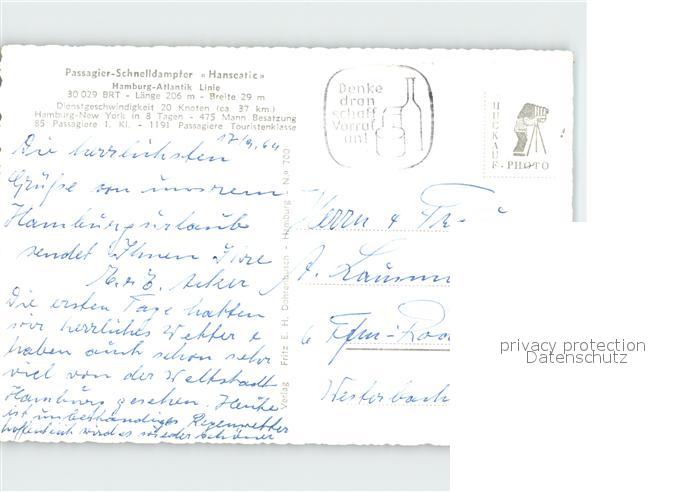 Passagier-Schnelldampfer «Hanseatic»
Hamburg-Atlantik Linie
30 029 BRT - Länge 206 m - Breite 29 m
Dienstgeschwindigkeit 20 Knoten (ca. 37 km)
Hamburg-New York in 8 Tagen - 475 Mann Besatzung
85 Passagiere I. Kl. - 1191 Passagiere Touristenklasse
17/9. 64
Die herrlichsten
Grüße von unserem
Hamburgurlaub
sendet Ihnen Ihre
Die ersten Tage hatten
wir herrliches Wetter &
haben auch schon sehr
viel von der Weltstadt
Hamburg gesehen. Heute
ist unbeständiges Regenwetter
hoffentlich wird es wieder schöner
Verlag Fritz E. H. Dohrenbusch - Hamburg - No 700
Denke
dran
schaff
Vorrat
an!
HUCKAUF-PHOTO
Herrn &
A.
6 Ffm-
Westerbach
privacy protection
Datenschutz